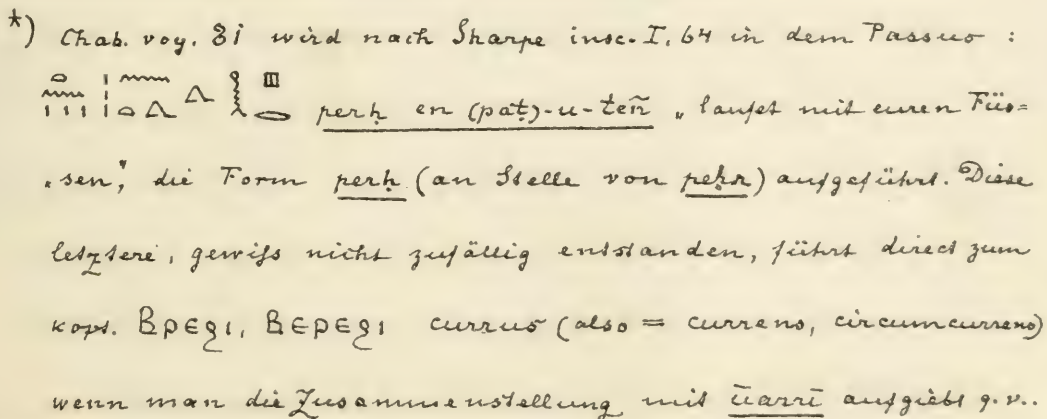 *) Chab. voy. 81 wird nach Sharpe insc. I, 64 in dem Passus :
perḥ en (paṭ)-u-ten̄ „laufet mit euren Füs=
„sen", die Form perḥ (an Stelle von peḥr) aufgeführt. Diese
letztere, gewifs nicht zufällig entstanden, führt direct zum
kopt. Ⲃⲣⲉϩⲓ, Ⲃⲉⲣⲉϩⲓ currus (also = currens, circumcurrens)
wenn man die Zusammenstellung mit ūarrī aufgiebt q.v..